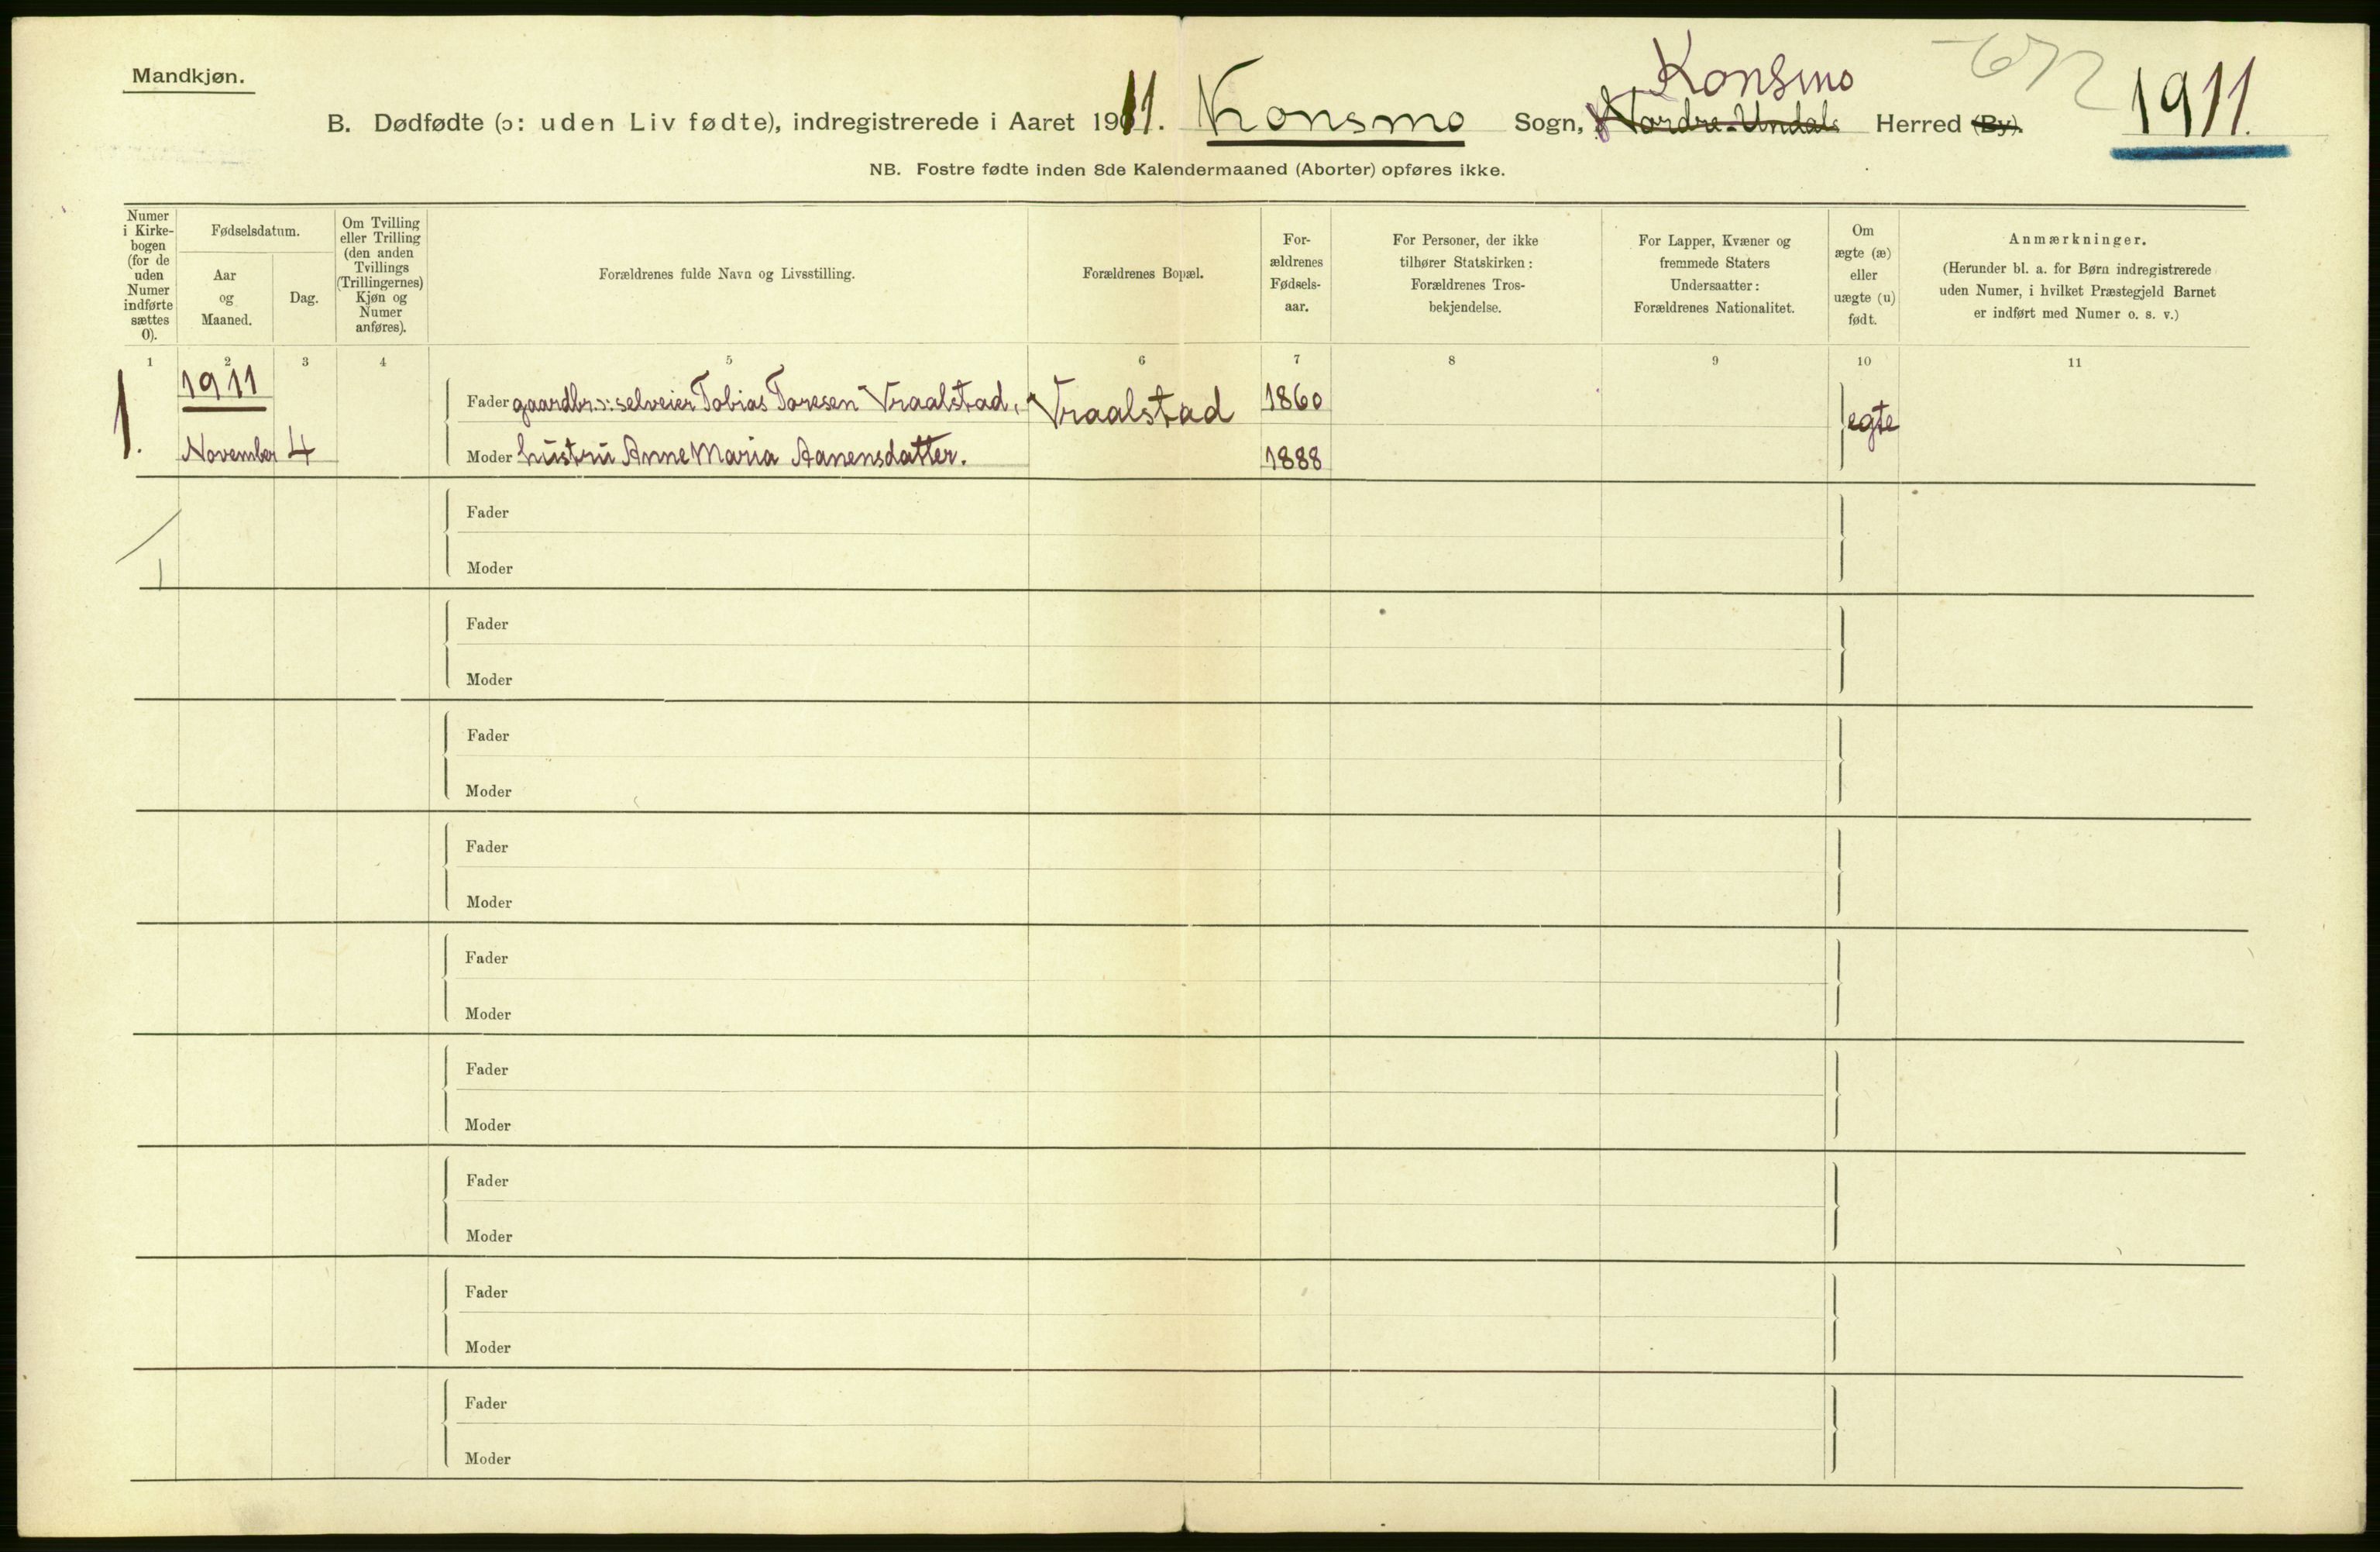 Mandkjøn.
Konsmo
672
B. Dødfødte (ɔ: uden Liv fødte), indregistrerede i Aaret 1911. Konsmo Sogn, Nordre-Undals Herred (By). 1911.
NB. Fostre fødte inden 8de Kalendermaaned (Aborter) opføres ikke.
Numer
i Kirke-
bogen
(for de
uden
Numer
indførte
sættes
0).
Fødselsdatum.
Aar
og
Maaned.
Dag.
Om Tvilling
eller Trilling
(den anden
Tvillings
(Trillingernes)
Kjøn og
Numer
anføres).
Forældrenes fulde Navn og Livsstilling.
Forældrenes Bopæl.
For-
ældrenes
Fødsels-
aar.
For Personer, der ikke
tilhører Statskirken:
Forældrenes Tros-
bekjendelse.
For Lapper, Kvæner og
fremmede Staters
Undersaatter:
Forældrenes Nationalitet.
Om
ægte (æ)
eller
uægte (u)
født.
Anmærkninger.
(Herunder bl. a. for Børn indregistrerede
uden Numer, i hvilket Præstegjeld Barnet
er indført med Numer o. s. v.)
1 2 3 4 5 6 7 8 9 10 11
1911
1. Fader gaardbr. ɔ: selveier Tobias Toresen Vraalstad, Vraalstad 1860 egte
November 4 Moder hustru Anne Maria Aanensdatter. 1888
Fader
1 Moder
Fader
Moder
Fader
Moder
Fader
Moder
Fader
Moder
Fader
Moder
Fader
Moder
Fader
Moder
Fader
Moder